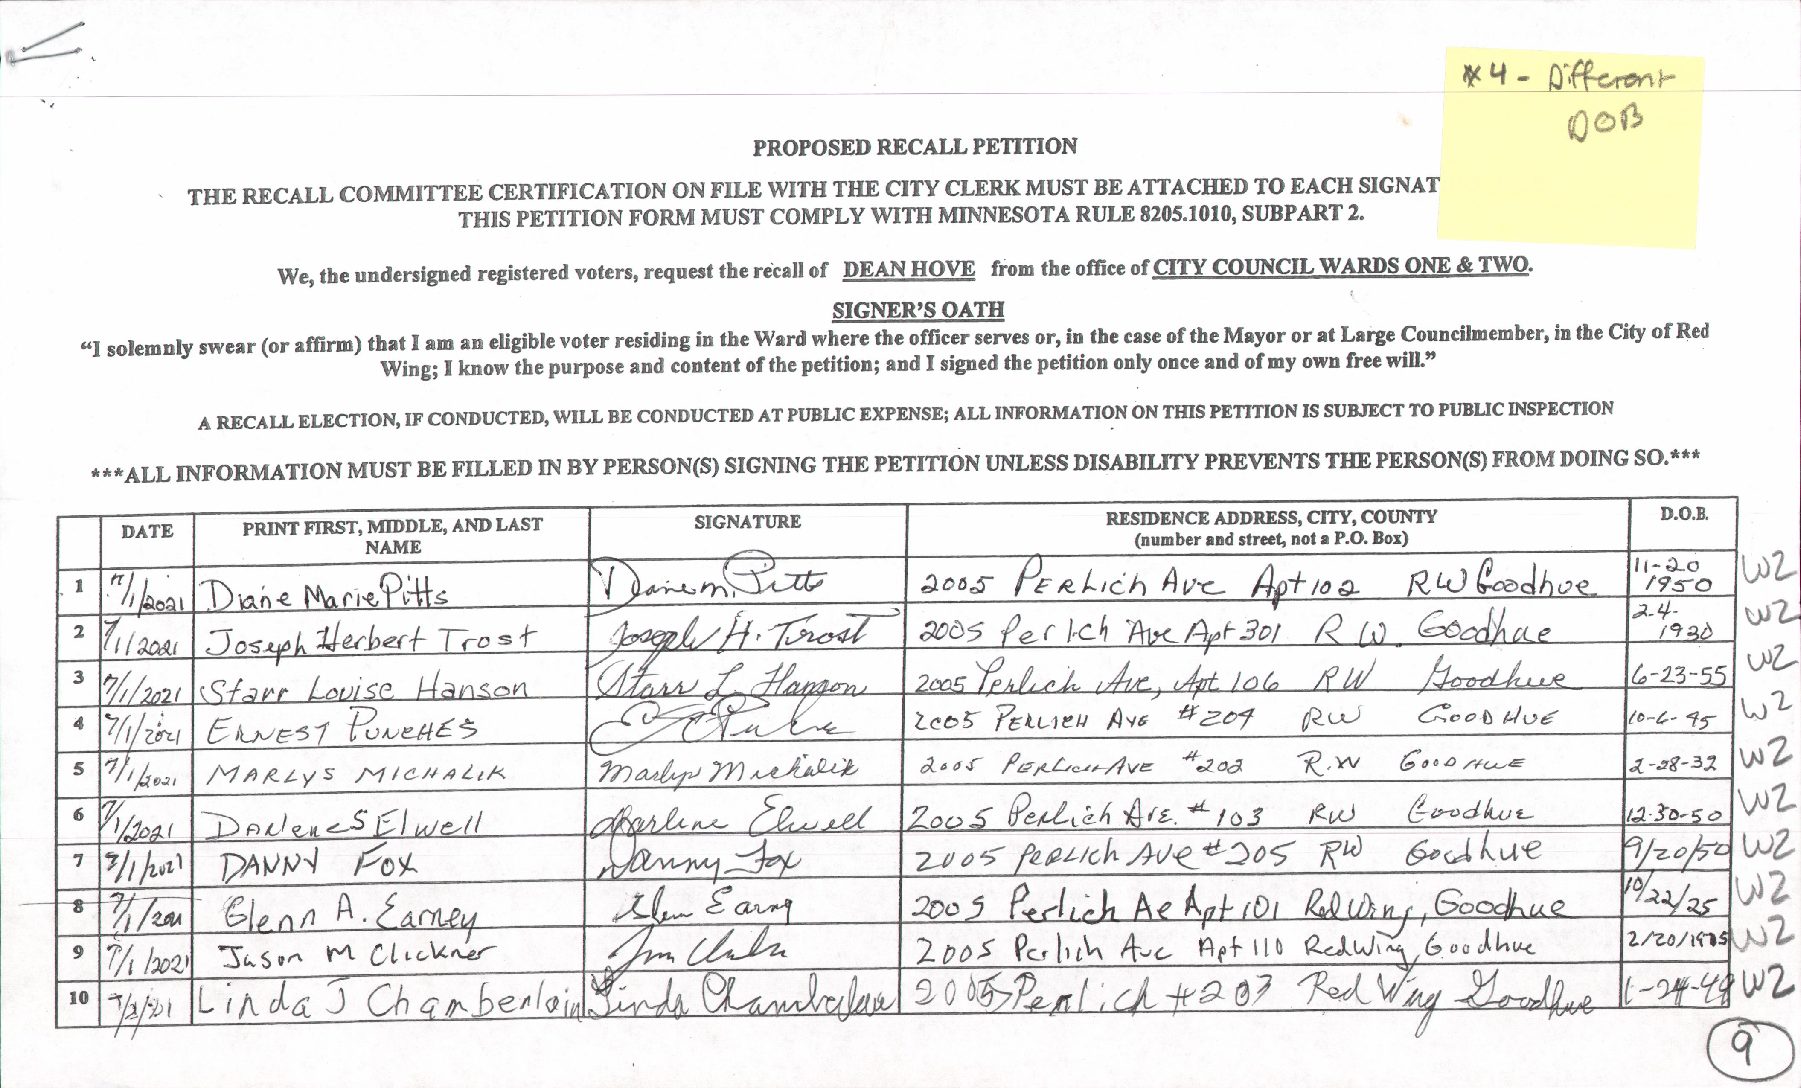 *4 - Different
DOB
PROPOSED RECALL PETITION
THE RECALL COMMITTEE CERTIFICATION ON FILE WITH THE CITY CLERK MUST BE ATTACHED TO EACH SIGNAT
THIS PETITION FORM MUST COMPLY WITH MINNESOTA RULE 8205.1010, SUBPART 2.
We, the undersigned registered voters, request the recall of DEAN HOVE from the office of CITY COUNCIL WARDS ONE & TWO.
SIGNER'S OATH
"I solemnly swear (or affirm) that I am an eligible voter residing in the Ward where the officer serves or, in the case of the Mayor or at Large Councilmember, in the City of Red
Wing; I know the purpose and content of the petition; and I signed the petition only once and of my own free will."
A RECALL ELECTION, IF CONDUCTED, WILL BE CONDUCTED AT PUBLIC EXPENSE; ALL INFORMATION ON THIS PETITION IS SUBJECT TO PUBLIC INSPECTION
***ALL INFORMATION MUST BE FILLED IN BY PERSON(S) SIGNING THE PETITION UNLESS DISABILITY PREVENTS THE PERSON(S) FROM DOING SO.***
DATE PRINT FIRST, MIDDLE, AND LAST NAME SIGNATURE RESIDENCE ADDRESS, CITY, COUNTY (number and street, not a P.O. Box) D.O.B.
1 7/1/2021 Diane Marie Pitts Diane M. Pitts 2005 PERLich Ave Apt 102 RW Goodhue 11-20 1950 W2
2 7/1/2021 Joseph Herbert Trost Joseph H. Trost 2005 Perlich Ave Apt 301 R.W. Goodhue 2-4-1930 W2
3 7/1/2021 Starr Louise Hanson Starr L Hanson 2005 Perlich Ave, Apt 106 RW Goodhue 6-23-55 W2
4 7/1/2021 ERNEST PUNCHES 2005 PERLICH AVE #204 RW GOODHUE 10-6-45 W2
5 7/1/2021 MARLYS MICHALIK Marlys Michalik 2005 PERLICH AVE #202 R.W GOODHUE 2-28-32 W2
6 7/1/2021 Darlene S Elwell Darlene Elwell 2005 Perlich Ave. #103 RW Goodhue 12-30-50 W2
7 7/1/2021 DANNY FOX Danny Fox 2005 PERLICH AVE #205 RW Goodhue 9/20/50 W2
8 7/1/2021 Glenn A. Earney Glenn Earney 2005 Perlich Ae Apt 101 Red Wing, Goodhue 10/22/25 W2
9 7/1/2021 Jason M Clickner 2005 Perlich Ave Apt 110 Red Wing, Goodhue 2/20/1985 W2
10 Linda J Chamberlain Linda Chamberlain 2005 Perlich #203 Red Wing Goodhue 1-24-49 W2
9